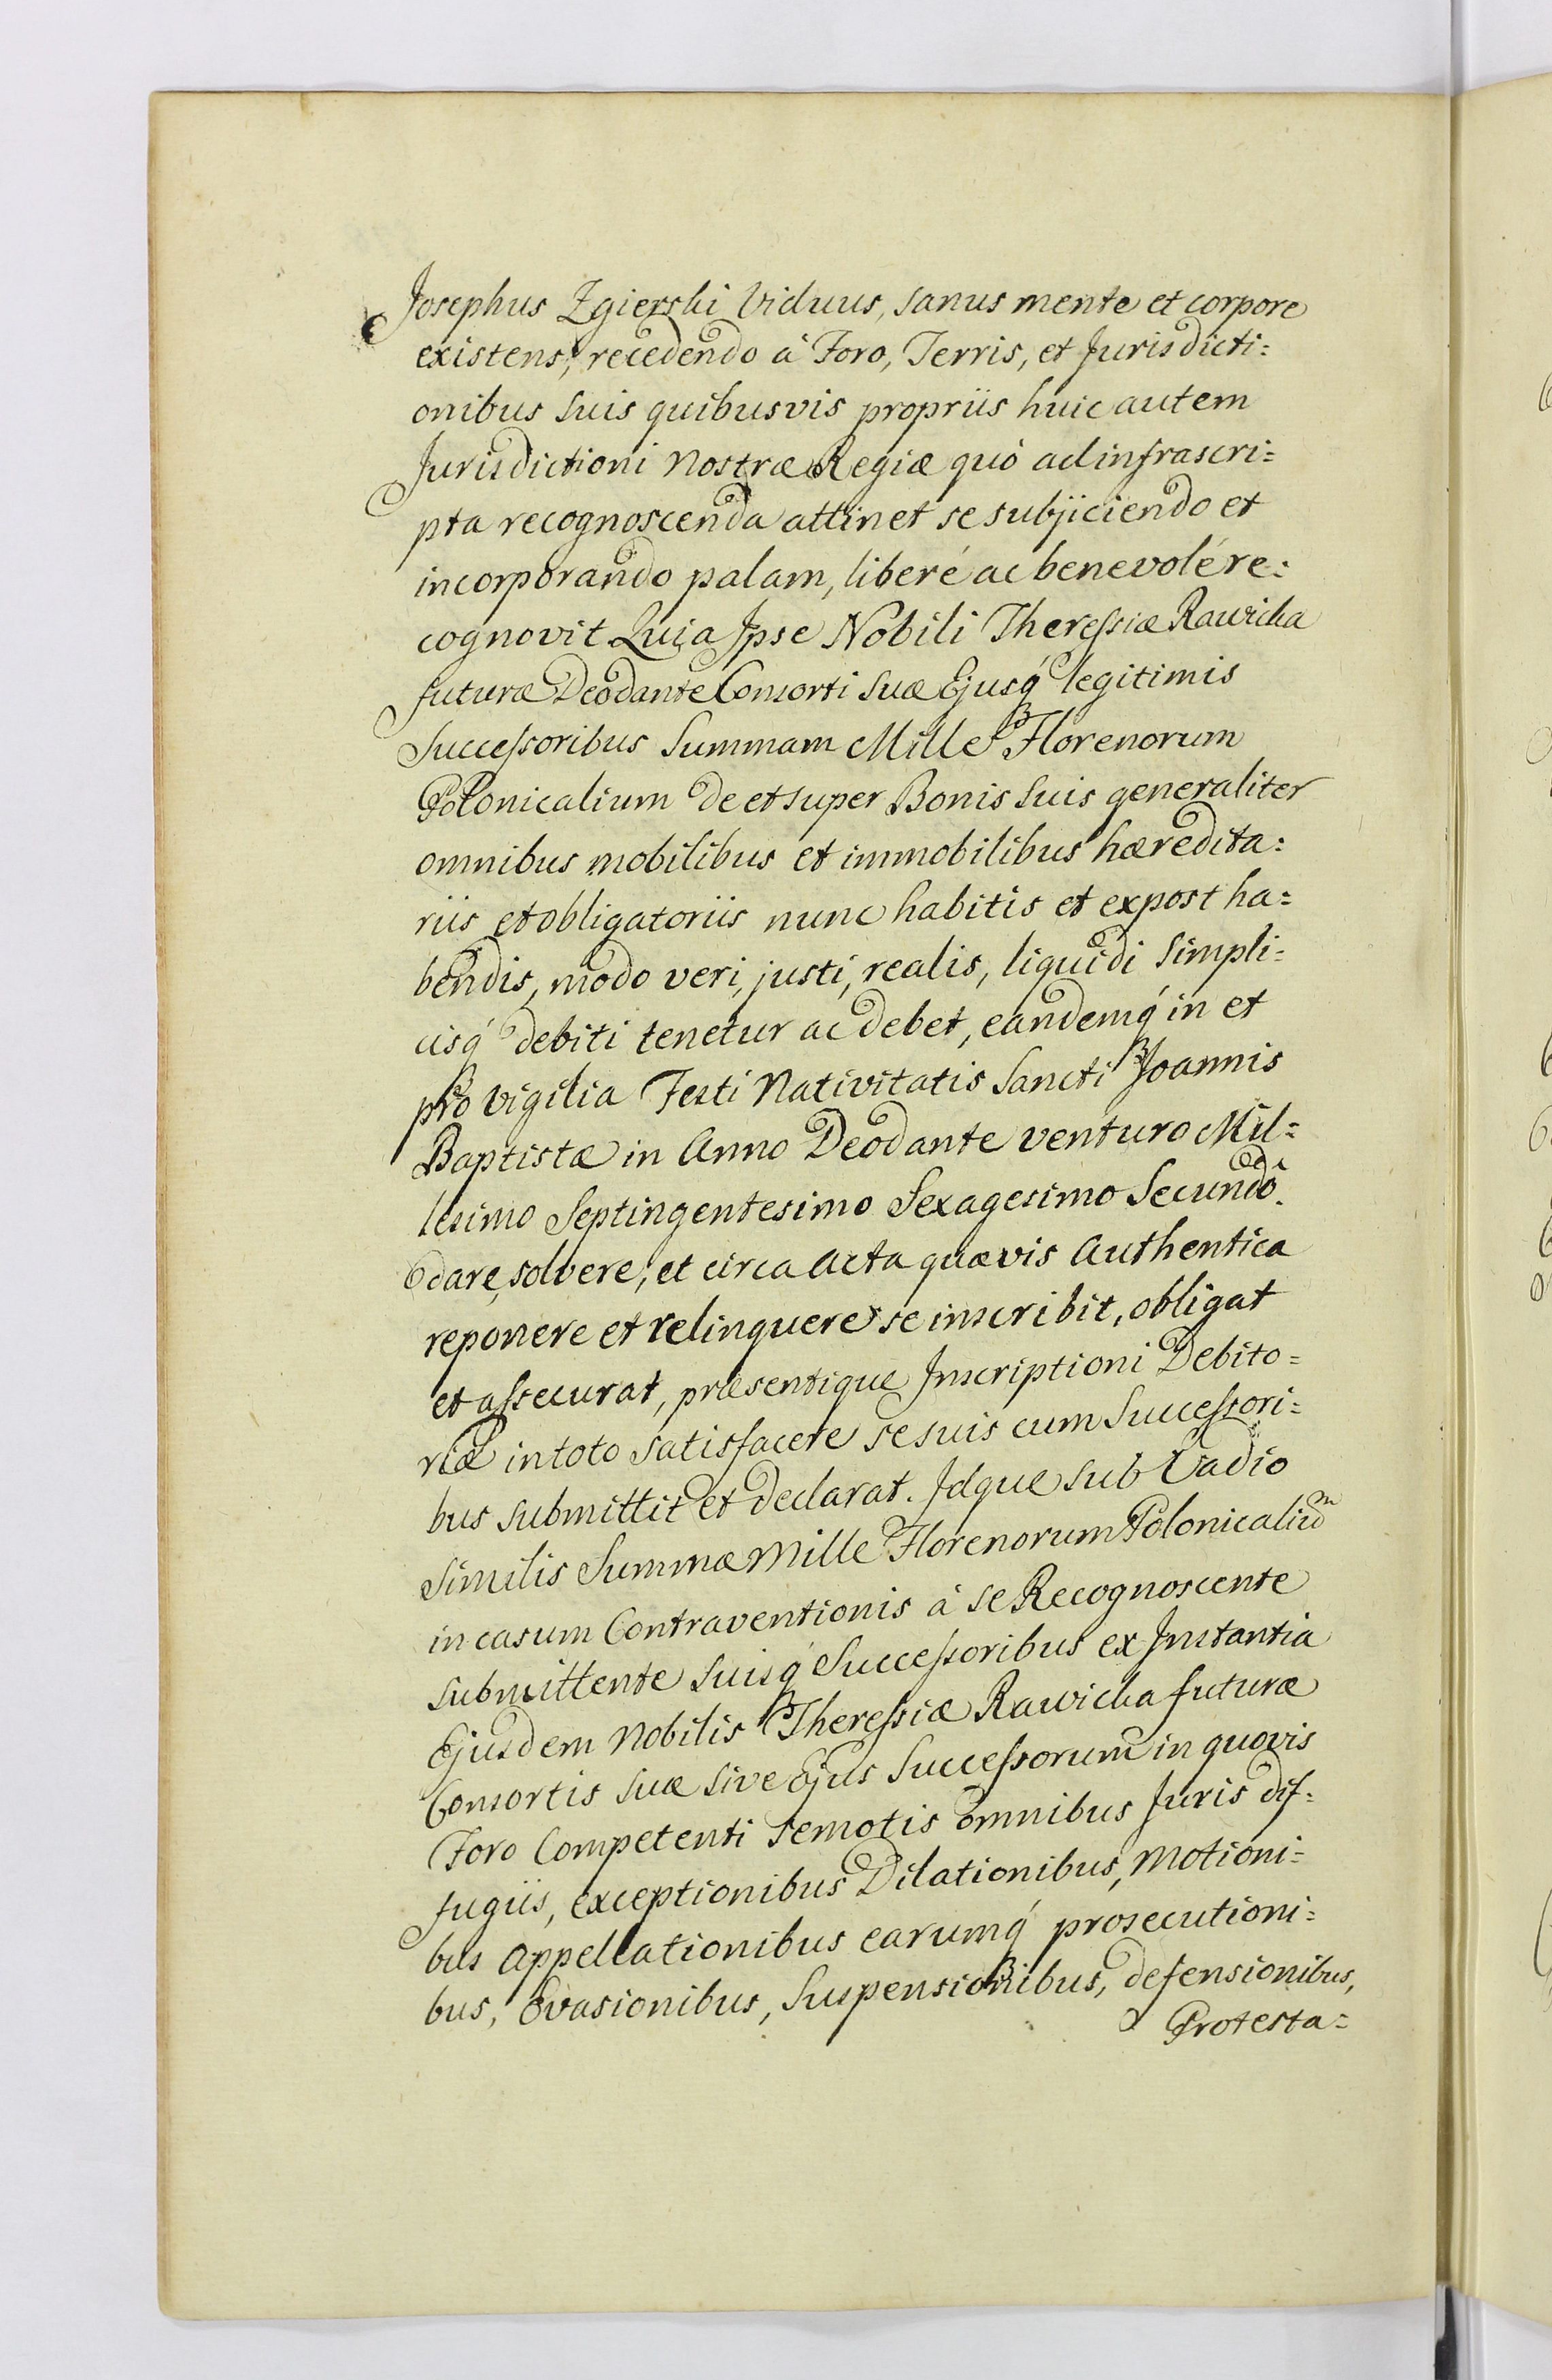 Josephus Zgierski Viduus, sanus mente et corpore
existens, recedendo à Foro, Terris, et Jurisdicti=
onibus suis quibusvis propriis huic autem
Jurisdictioni Nostræ Regiæ quò ad infrascri=
pta recognoscenda attinet se subjiciendo et
incorporando palam, liberé ac benevolé re=
cognovit Quia Ipse Nobili Theressiæ Rawicka
futuræ Deodante Consorti suæ Ejusq́ legitimis
Successoribus Summam Mille Florenorum
Polonicalium de et super Bonis suis generaliter
omnibus mobilibus et immobilibus hæredita=
riis et obligatoriis nunc habitis et expost ha=
bendis, modo veri, justi, realis, liquidi simpli=
cisq́ debiti tenetur ac debet, eandemq́ in et
pro Vigilia Festi Nativitatis Sancti Joannis
Baptistæ in Anno Deodante venturo Mil=
lesimo Septingentesimo Sexagesimo Secundô
dare, solvere, et circa Acta quævis Authentica
reponere et relinquere se inscribit, obligat
et assecurat, præsentique Inscriptioni Debito=
riæ in toto satisfacere se suis cum Successori=
bus submittit et declarat. Idque sub Vadio
similis Summæ Mille Florenorum Polonicaliu͂m
in casum Contraventionis à se Recognoscente
submittente suisq́ Successoribus ex Instantia
Ejusdem Nobilis Theressiæ Rawicka futuræ
Consortis suæ sive Ejus Successorum in quovis
Foro Competenti semotis omnibus Juris dif=
fugiis, exceptionibus Dilationibus, Motioni=
bus Appellationibus earumq́ prosecutioni=
bus, Evasionibus, Suspensionibus, defensionibus,
Protesta=